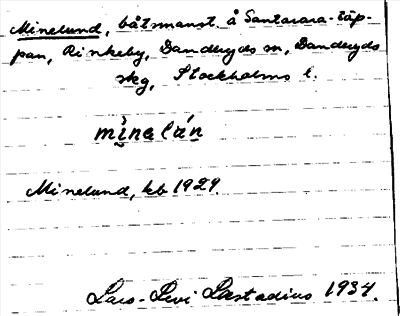 Minelund, båtsmanst. å Santarara-täp-
pan, Rinkeby, Danderyds sn, Danderyds
skg, Stockholms l.
mìnelán
Minelund, kb 1929.
Lars-Levi Læstadius 1934.